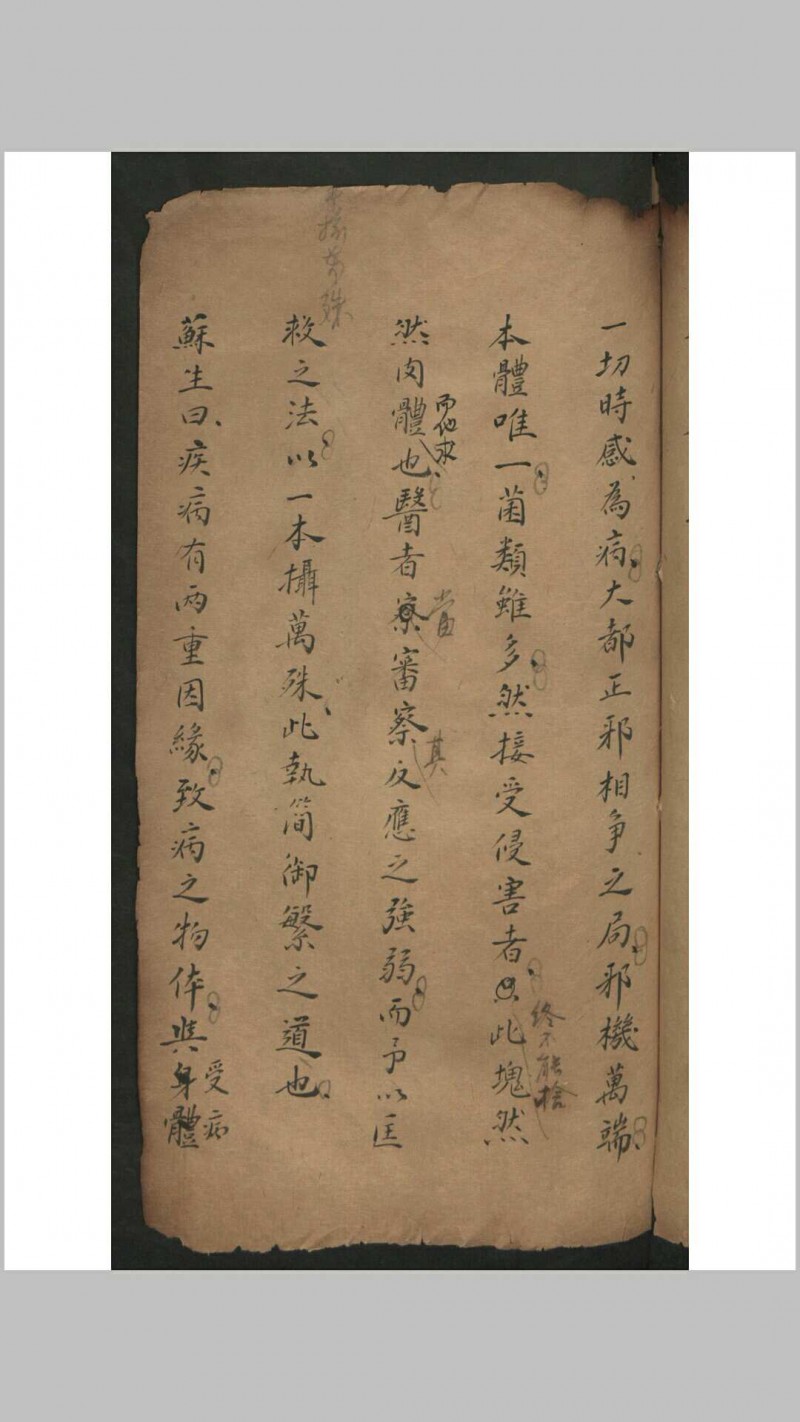 一切時感為病大都正邪相爭之局邪機萬端
本體唯一菌類雖多然接受侵害者只此塊然
終不能捨
然肉體也醫者察審察反應之強弱而予以匡
而他求
當
其
救之法以一本攝萬殊此執简御繁之道也
蘇生曰疾病有两重因緣致病之物体與身體
受病